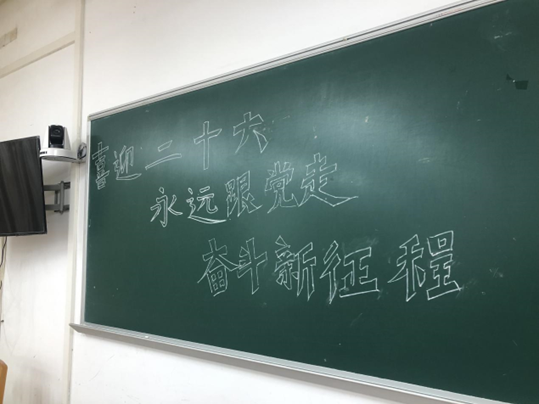 喜迎二十六
永远跟党走
奋斗新征程